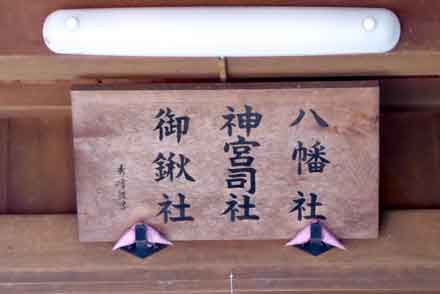 八幡社
神宮司社
御鍬社